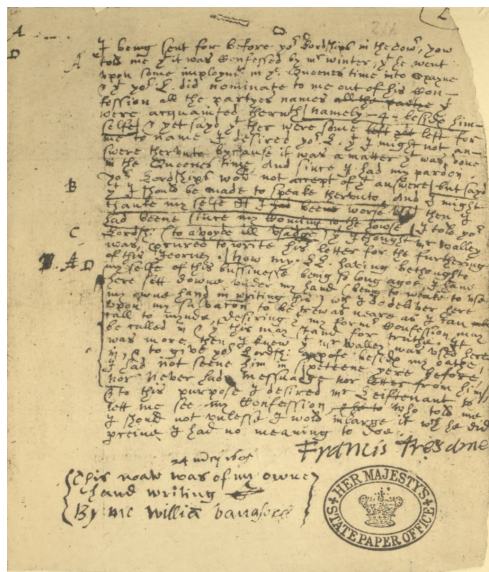 A
D
I being sent for before yor Lordships in the towr, yow
A told me yt it was confessed by mr winter, yt he went
upon some imploymt in ye Queenes time into Spayne
& yt yor L. did nominate to me out of his con-
fession all the partyes names all the partye yt
were acquainted herwth namely 4 beside him-
selfe & yet sayd yt ther were some left yet left for
me to name. I desired yor L. yt I might not an-
swere therunto bycause it was a matter yt was done
in the Queenes time and since I had my pardon.
B yor Lordships wold not accept of yt answere but sayd
yt I should be made to speake therunto And I might
thanke my selfe if I had been worse used then I
had beene since my coming to the house I told yor
C Lordsh: (to avoyde ill usadge) yt I thought mr walley
was prived to write his letter for the furthering
of this Jorney. Now my LL having bethought
B. A D my selfe of this bussinesse being so long agoe, I have
here sett downe under my hand (being so weake to use
my owne hand in writing this) wch I do deliver here
upon my salvation to be trew as neare as I can
call to minde, desiring yt my former confession may
be called in & yt this may stand for truthe. It
was more then I knew yt mr walley was used here
in, & to give yor Lordsh: proofe beside my oathe,
I had not seene him in sixteene yere before,
nor never had messuadge nor letter from him,
& to this purpose I desired mr Leiftenant to
lett me see my confession who told me
I should not unlesse I wold inlarge it wch he did
perceive I had no meaning to doe.
Francis Tresame
24 mrch 1605
This noat was of my owne
hand writing
By me William Vavasor
HER MAJESTY'S
STATE PAPER OFFICE